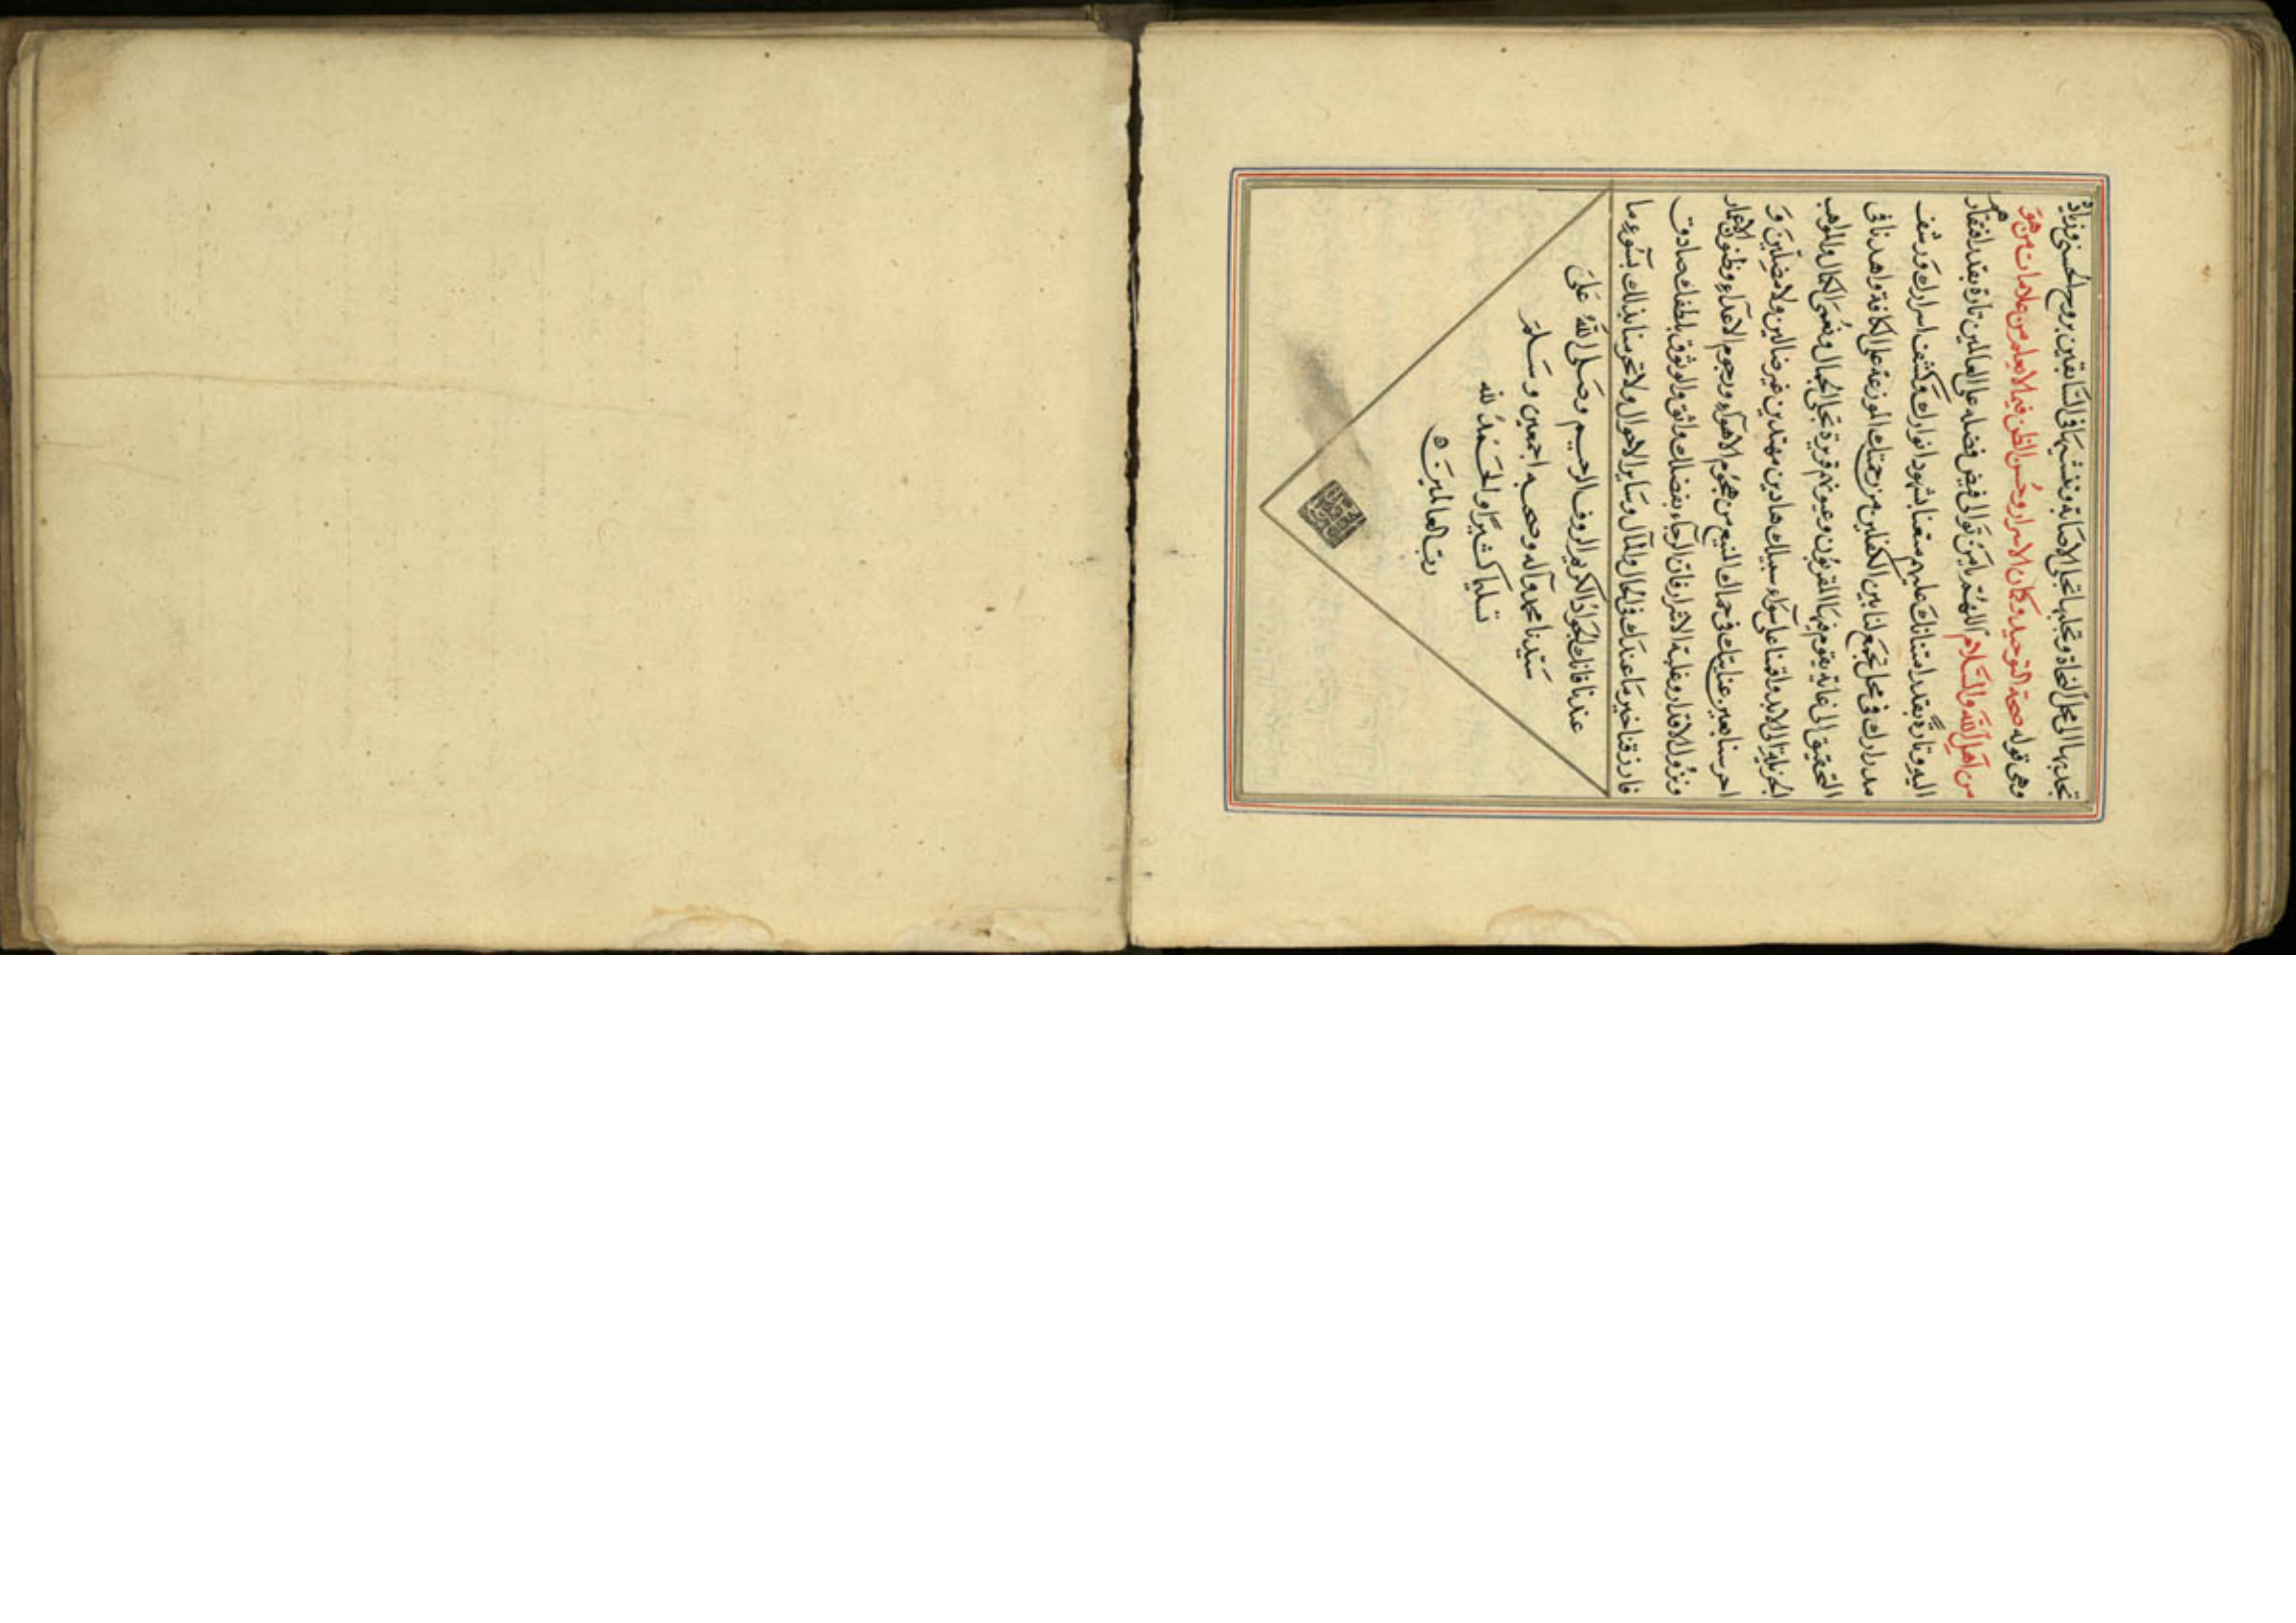 تجذبها الى محل النجاة وتجلبها تجلى الاصابة وتغشيها فى السابقين بروح الحسنى وزيادة
وهى قوله صحة التوحيد وكمال الاسرار وحسن الظن فيما لا يعلم من علامات من هو
من اهل الله والسلام اللهم يا من توالى فيض فضله على العالمين تارة بقدر افتقارهم
اليه وتارة بقدر امتنانك عليهم متعنا بشهود انوارك وكشف اسرارك ورشف
مدرارك فى محل تجمع لنا بين الكفلين من رحمتك الموزعة على الكافة واهدنا فى
التحقيق الى غاية يقوم فيها المقربون وعيونهم قريرة تجلى الجمال ونعمى الكمال والمواهب
الجزيلة الى الابد واقمنا على سواء سبيلك هادين مهتدين غير ضالين ولا مضلين و
احرسنا بعين عنايتك فى حماك المنيع من هجوم الاهواء ورجوم الاعداء وظنون الاغمار
ونزول الاقدار وغلبة الاشرار فان الرجاء بفضلك واثق والوثوق بلطفك صادق
فارزقنا خير ما عندك فى الحال والمآل وسائر الاحوال ولا تحرمنا بذلك بسوء ما
عندنا فانك الجواد الكريم الرؤف الرحيم وصلى الله على
سيدنا محمد وآله وصحبه اجمعين وسلم
تسليما كثيرا والحمد لله
رب العالمين ٥